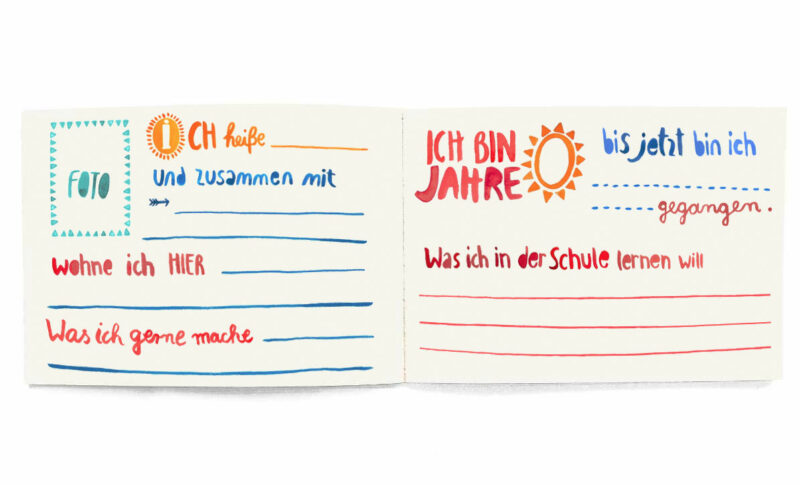 FOTO
ICH heiße
und zusammen mit
wohne ich HIER
Was ich gerne mache
ICH BIN
JAHRE
bis jetzt bin ich
gegangen.
Was ich in der Schule lernen will